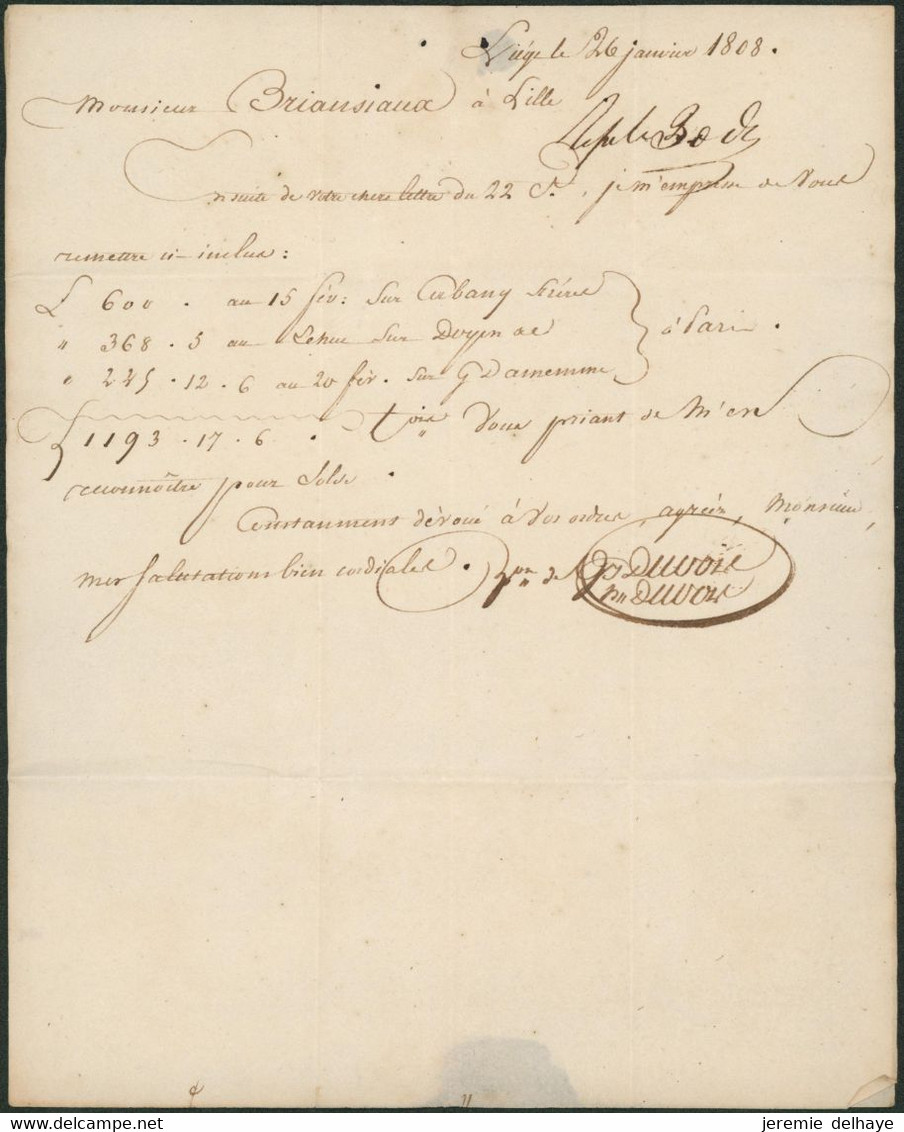 Liége le 26 janvier 1808.
Monsieur Briansiaux à Lille
Rep le 30 dt
En suite de votre chere lettre du 22 Ct. je m'empresse de Vous
remettre ci-inclus :
£ 600 . au 15 fév: sur Cubany fréres
" 368 . 5 au sur Doyen &c } à Paris.
" 225 . 12 . 6 au 20 fév. sur G Damemme
£ 1193 . 17 . 6 . Vous priant de m'en
reconnoître pour solde .
Constamment dévoué à Vos ordres, agréez, Monsieur,
mes salutations bien cordiales .
Duvoir
Duvoir
jeremie delhaye